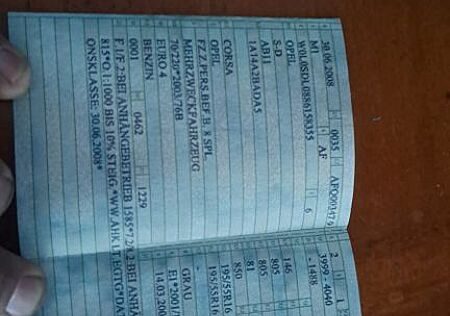 30.06.2008 0035
M1 AF
W0L0SDL0886158355 6
OPEL
S-D
AB11
1A14A2BADA5
CORSA
OPEL
FZ.Z.PERS.BEF.B. 8 SPL.
MEHRZWECKFAHRZEUG
70/220*2003/76B
EURO 4
BENZIN
0001 0462 1229
F.1/F.2:BEI ANHÄNGEBETRIEB 1585*7.2/8.2:BEI ANHÄ
815*O.1:1000 BIS 10% STEIG.*WW.AHK LT.EGTG*DA
ONSKLASSE: 30.06.2008*
2 1
3999 - 4040
- 1488
146
805
805
81
850
195/55R16
195/55R16
-
GRAU
E1*2001/
14.03.200